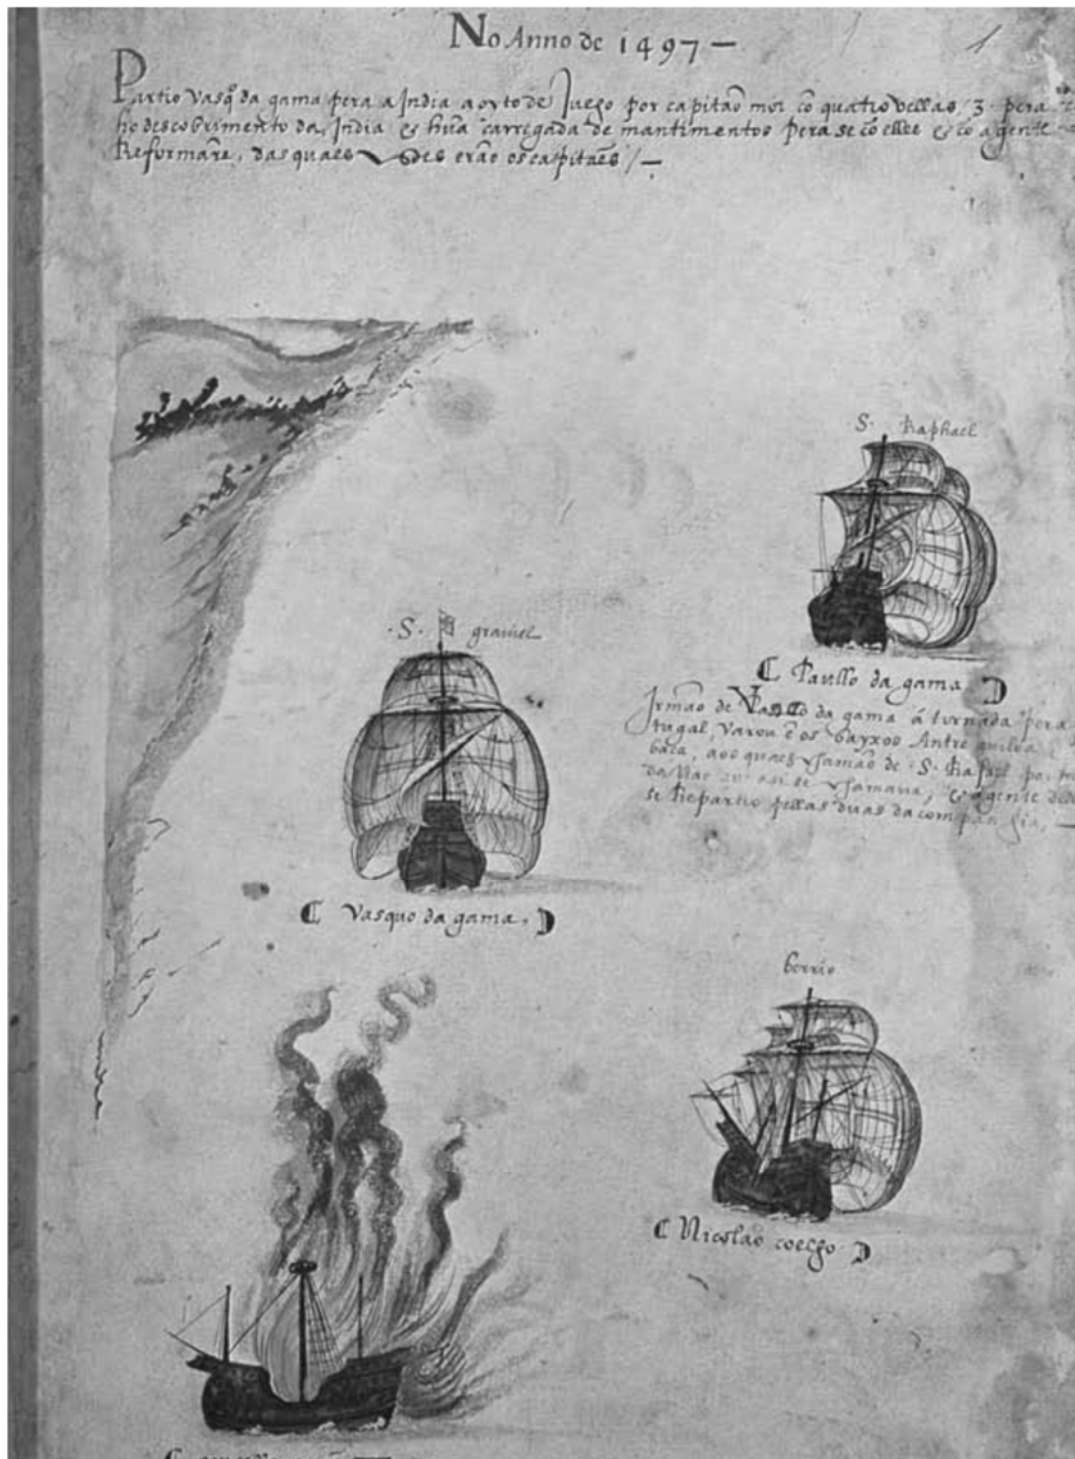 No Anno de 1497 —
Partio Vasq̃ da gama pera a India a oyto de Julho por capitão mor cõ quatro vellas / 3 · pera
ho descobrimento da India & hũa carregada de mantimentos pera se cõ elles & cõ a gente
Reformarẽ, das quaes erão os capitães / —
· S · Raphael
· S · graviel
Paullo da gama
Irmão de Vasco da gama á tornada pera
tugal, varou ẽ os bayxos Antre quiloa
baça, aos quaes chamão de · S · Rafael por
da Nao se chamava, & a gente
se Repartio pellas duas da companhia, —
Vasquo da gama,
berrio
Nicolao coelho